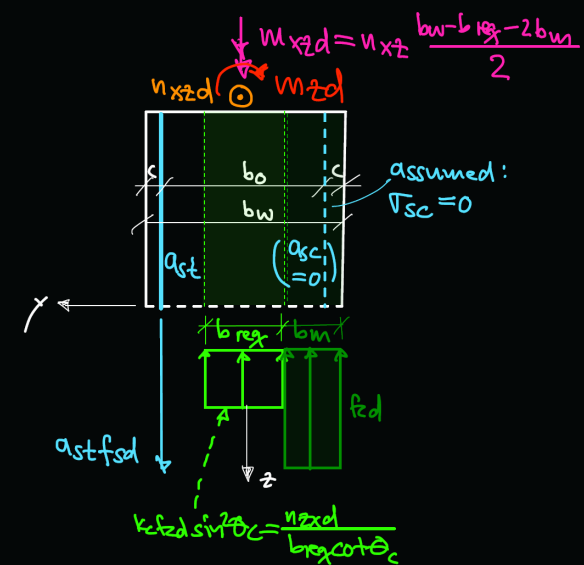 m_xzd = n_xz (b_w - b_req - 2b_m) / 2
n_xzd m_zd
c b_0 c
b_w
assumed:
σ_sc = 0
a_st (a_sc = 0)
b_req b_m
f_cd
a_st f_sd
z
k_c f_cd sin²θ_c = n_zxd / (b_req cot θ_c)